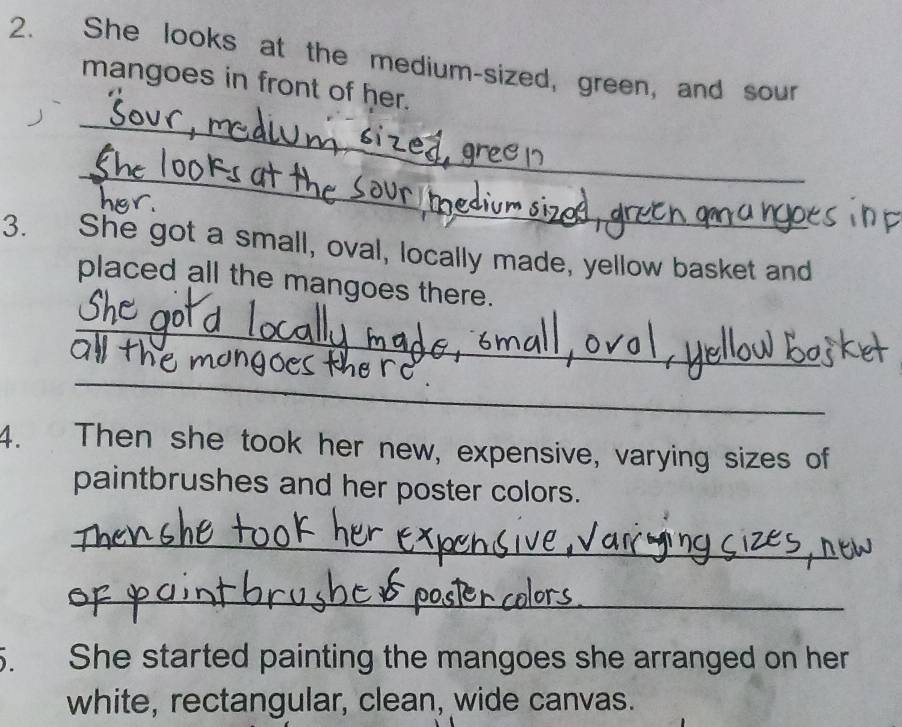 2. She looks at the medium-sized, green, and sour
mangoes in front of her.
Sour, medium, sized, green
She looks at the sour, medium sized, green mangoes in f
her.
3. She got a small, oval, locally made, yellow basket and
placed all the mangoes there.
She got a locally made, small, oval, yellow basket
all the mangoes there.
4. Then she took her new, expensive, varying sizes of
paintbrushes and her poster colors.
Then she took her expensive, varying sizes, new
of paintbrushes poster colors.
5. She started painting the mangoes she arranged on her
white, rectangular, clean, wide canvas.